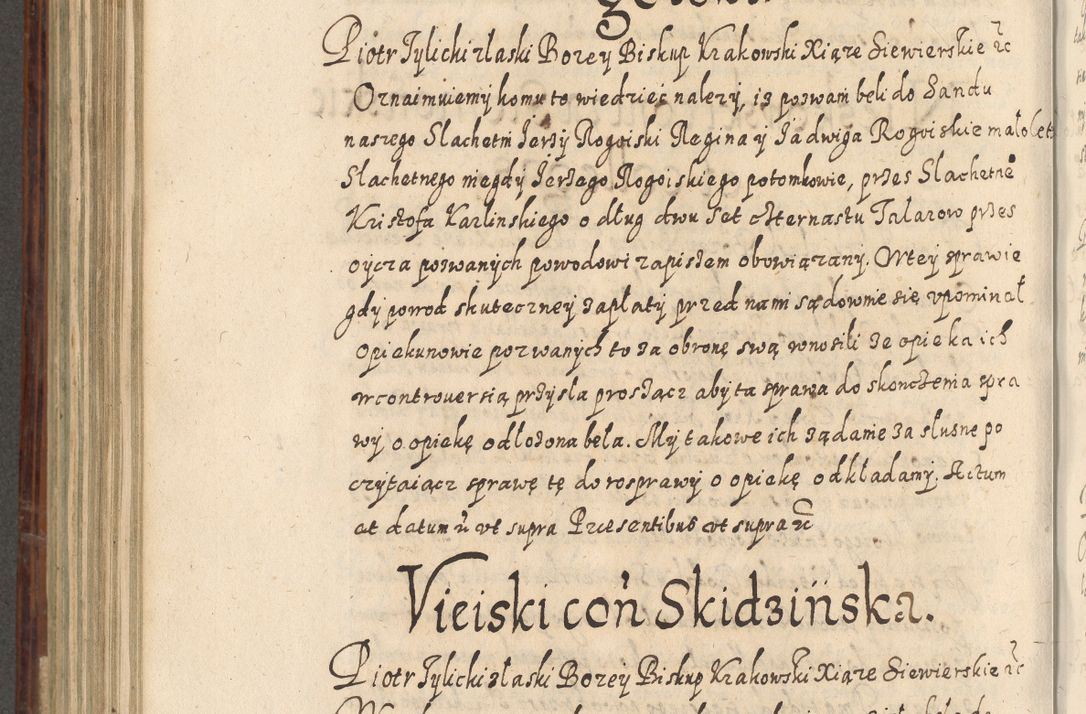 Piotr Tylicki złaski Bozey Biskup Krakowski Xiąze Siewierskie ꝛc
Oznaimuiemy komu to wiedzieć nalezy, iz pozwani beli do Sandu
naszego Slachetni Jerzy Rogoiski Regina y Jadwiga Rogoiskie małolet
Slachetnego niegdy Jerzego Rogoiskiego potomkowie, przes Slachetne°
Krisztofa Karlinskiego o dług dwu set czternastu Talarow przes
oycza pozwanych powodowi zapisem obowiązany. W tey sprawie
gdy powod skuteczney zapłaty przed nami sądownie się vpominał
Opiekunowie pozwanych to za obronę swą wnosili ze opieka ich
w controuersią przysla proszącz aby ta sprawa do skonczenia spra
wy o opiekę odłozona beła. My takowe ich ządanie za slusne po
czytaiącz sprawę tę do rosprawy o opiekę odkładamy. Actum
et datum ut supra Præsentibus vt supra ꝛc
Vieiski coń Skidzińska.
Piotr Tylicki złaski Bozey Biskup Krakowski Xiąze Siewierskie ꝛc